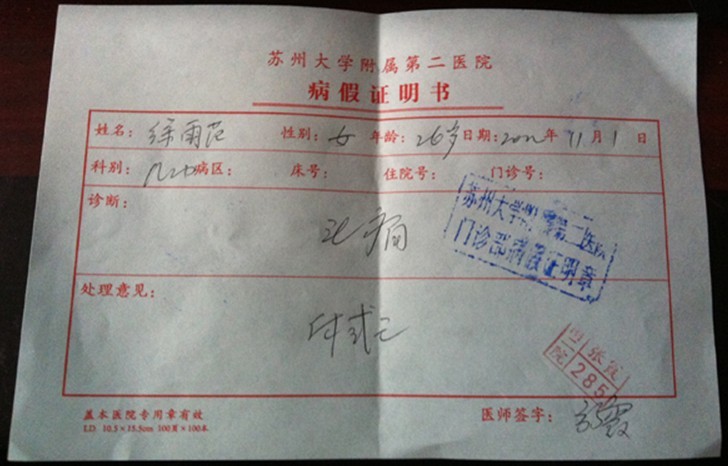 苏州大学附属第二医院
病假证明书
姓名: 徐雨范 性别: 女 年龄: 26岁 日期: 年 11月1日
科别: 病区: 床号: 住院号: 门诊号:
诊断:
苏州大学附属第二医院
门诊部病假证明章
处理意见:
285
盖本医院专用章有效
医师签字:
LD 10.5×15.5cm 100页×100本